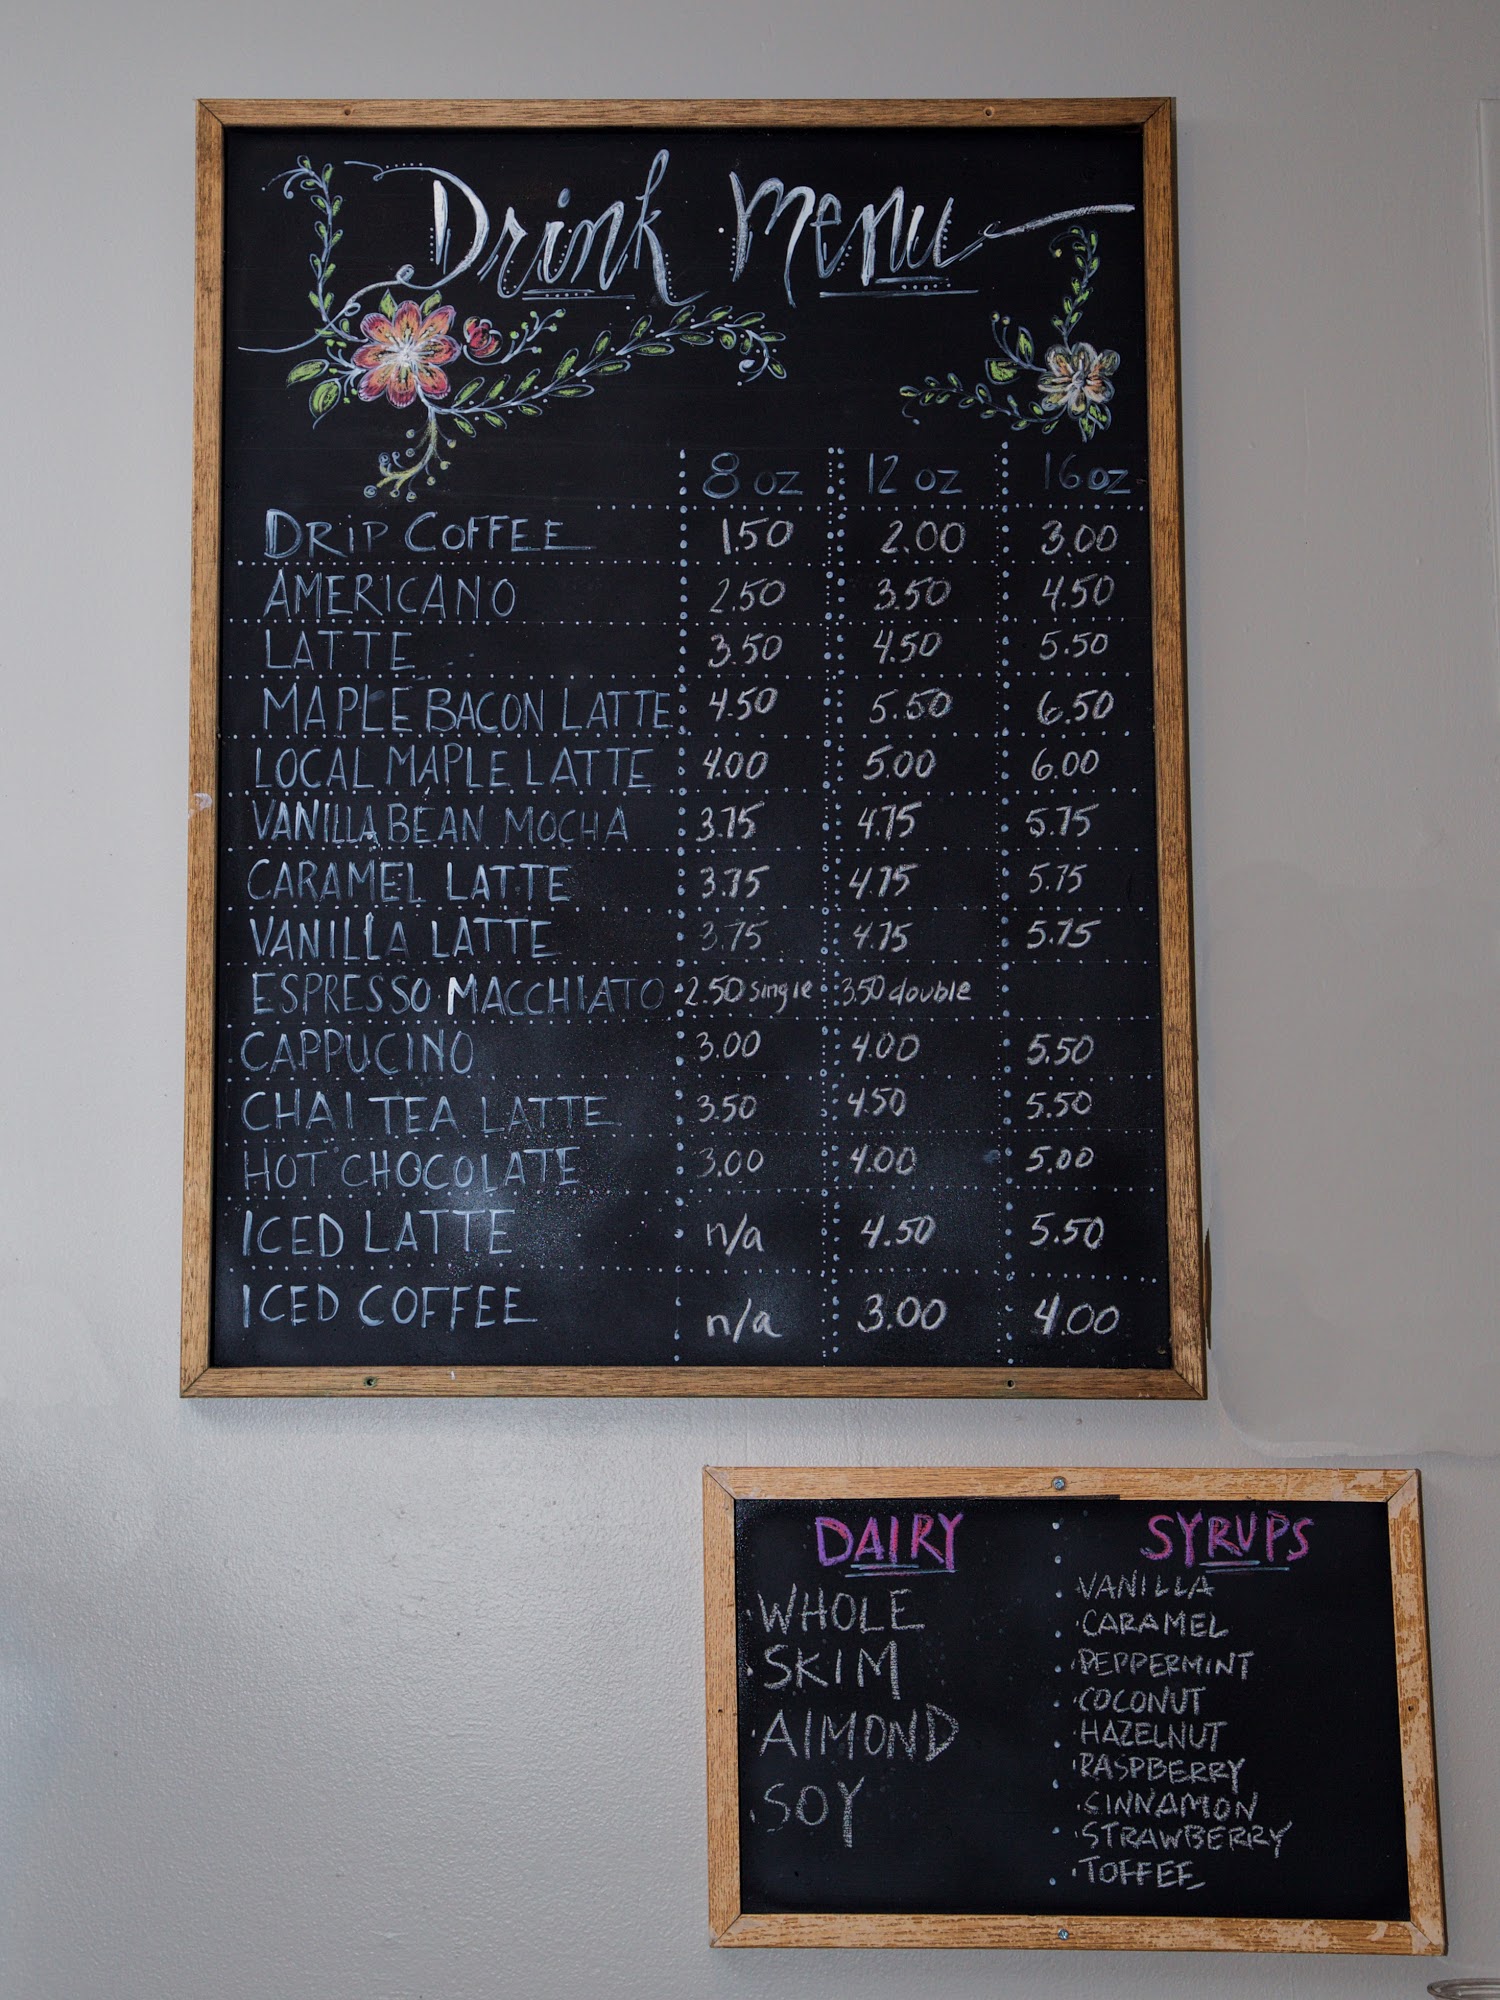 Drink Menu
8 oz 12 oz 16 oz
DRIP COFFEE 1.50 2.00 3.00
AMERICANO 2.50 3.50 4.50
LATTE 3.50 4.50 5.50
MAPLE BACON LATTE 4.50 5.50 6.50
LOCAL MAPLE LATTE 4.00 5.00 6.00
VANILLA BEAN MOCHA 3.75 4.75 5.75
CARAMEL LATTE 3.75 4.75 5.75
VANILLA LATTE 3.75 4.75 5.75
ESPRESSO MACCHIATO 2.50 single 3.50 double
CAPPUCINO 3.00 4.00 5.50
CHAI TEA LATTE 3.50 4.50 5.50
HOT CHOCOLATE 3.00 4.00 5.00
ICED LATTE n/a 4.50 5.50
ICED COFFEE n/a 3.00 4.00
DAIRY
· WHOLE
· SKIM
· AlMOND
· SOY
SYRUPS
· VANILLA
· CARAMEL
· PEPPERMINT
· COCONUT
· HAZELNUT
· RASPBERRY
· CINNAMON
· STRAWBERRY
· TOFFEE